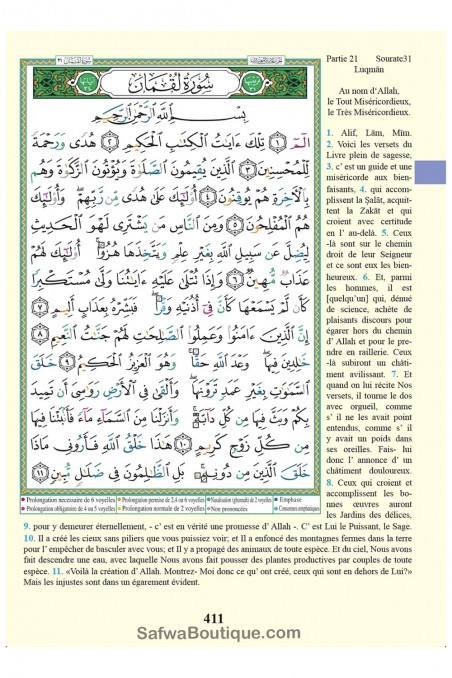 Partie 21 Sourate31
Luqmān
Au nom d'Allah,
le Tout Miséricordieux,
le Très Miséricordieux.
سُورَةُ لُقْمَانَ
بِسْمِ اللَّهِ الرَّحْمَٰنِ الرَّحِيمِ
الٓمٓ ١ تِلْكَ ءَايَٰتُ الْكِتَٰبِ الْحَكِيمِ ٢ هُدًى وَرَحْمَةً
لِّلْمُحْسِنِينَ ٣ الَّذِينَ يُقِيمُونَ الصَّلَوٰةَ وَيُؤْتُونَ الزَّكَوٰةَ وَهُم
بِالْءَاخِرَةِ هُمْ يُوقِنُونَ ٤ أُو۟لَٰٓئِكَ عَلَىٰ هُدًى مِّن رَّبِّهِمْ وَأُو۟لَٰٓئِكَ
هُمُ الْمُفْلِحُونَ ٥ وَمِنَ النَّاسِ مَن يَشْتَرِى لَهْوَ الْحَدِيثِ
لِيُضِلَّ عَن سَبِيلِ اللَّهِ بِغَيْرِ عِلْمٍ وَيَتَّخِذَهَا هُزُوًا أُو۟لَٰٓئِكَ لَهُمْ
عَذَابٌ مُّهِينٌ ٦ وَإِذَا تُتْلَىٰ عَلَيْهِ ءَايَٰتُنَا وَلَّىٰ مُسْتَكْبِرًا
كَأَن لَّمْ يَسْمَعْهَا كَأَنَّ فِىٓ أُذُنَيْهِ وَقْرًا فَبَشِّرْهُ بِعَذَابٍ أَلِيمٍ ٧
إِنَّ الَّذِينَ ءَامَنُوا۟ وَعَمِلُوا۟ الصَّٰلِحَٰتِ لَهُمْ جَنَّٰتُ النَّعِيمِ ٨
خَٰلِدِينَ فِيهَا وَعْدَ اللَّهِ حَقًّا وَهُوَ الْعَزِيزُ الْحَكِيمُ ٩ خَلَقَ
السَّمَٰوَٰتِ بِغَيْرِ عَمَدٍ تَرَوْنَهَا وَأَلْقَىٰ فِى الْأَرْضِ رَوَٰسِىَ أَن تَمِيدَ
بِكُمْ وَبَثَّ فِيهَا مِن كُلِّ دَآبَّةٍ وَأَنزَلْنَا مِنَ السَّمَآءِ مَآءً فَأَنۢبَتْنَا فِيهَا
مِن كُلِّ زَوْجٍ كَرِيمٍ ١٠ هَٰذَا خَلْقُ اللَّهِ فَأَرُونِى مَاذَا
خَلَقَ الَّذِينَ مِن دُونِهِۦ بَلِ الظَّٰلِمُونَ فِى ضَلَٰلٍ مُّبِينٍ ١١
Prolongation nécessaire de 6 voyelles Prolongation permise de 2,4 ou 6 voyelles Nasalisation (ghunnah) de 2 voyelles Emphase
Prolongation obligatoire de 4 ou 5 voyelles Prolongation normale de 2 voyelles Non prononcées Consonnes emphatiques
1. Alif, Lām, Mīm.
2. Voici les versets du
Livre plein de sagesse,
3. c' est un guide et une
miséricorde aux bien-
faisants, 4. qui accom-
plissent la Ṣalāt, acquit-
tent la Zakāt et qui
croient avec certitude
en l' au-delà. 5. Ceux
-là sont sur le chemin
droit de leur Seigneur
et ce sont eux les bien-
heureux. 6. Et, parmi
les hommes, il est
[quelqu'un] qui, dénué
de science, achète de
plaisants discours pour
égarer hors du chemin
d' Allah et pour le pren-
dre en raillerie. Ceux
-là subiront un châti-
ment avilissant. 7. Et
quand on lui récite Nos
versets, il tourne le dos
avec orgueil, comme
s' il ne les avait point
entendus, comme s' il
y avait un poids dans
ses oreilles. Fais- lui
donc l' annonce d' un
châtiment douloureux.
8. Ceux qui croient et
accomplissent les bo-
nnes œuvres auront
les Jardins des délices,
9. pour y demeurer éternellement, - c' est en vérité une promesse d' Allah -. C' est Lui le Puissant, le Sage.
10. Il a créé les cieux sans piliers que vous puissiez voir; et Il a enfoncé des montagnes fermes dans la terre
pour l' empêcher de basculer avec vous; et Il y a propagé des animaux de toute espèce. Et du ciel, Nous avons
fait descendre une eau, avec laquelle Nous avons fait pousser des plantes productives par couples de toute
espèce. 11. «Voilà la création d' Allah. Montrez- Moi donc ce qu' ont créé, ceux qui sont en dehors de Lui?»
Mais les injustes sont dans un égarement évident.
411
SafwaBoutique.com